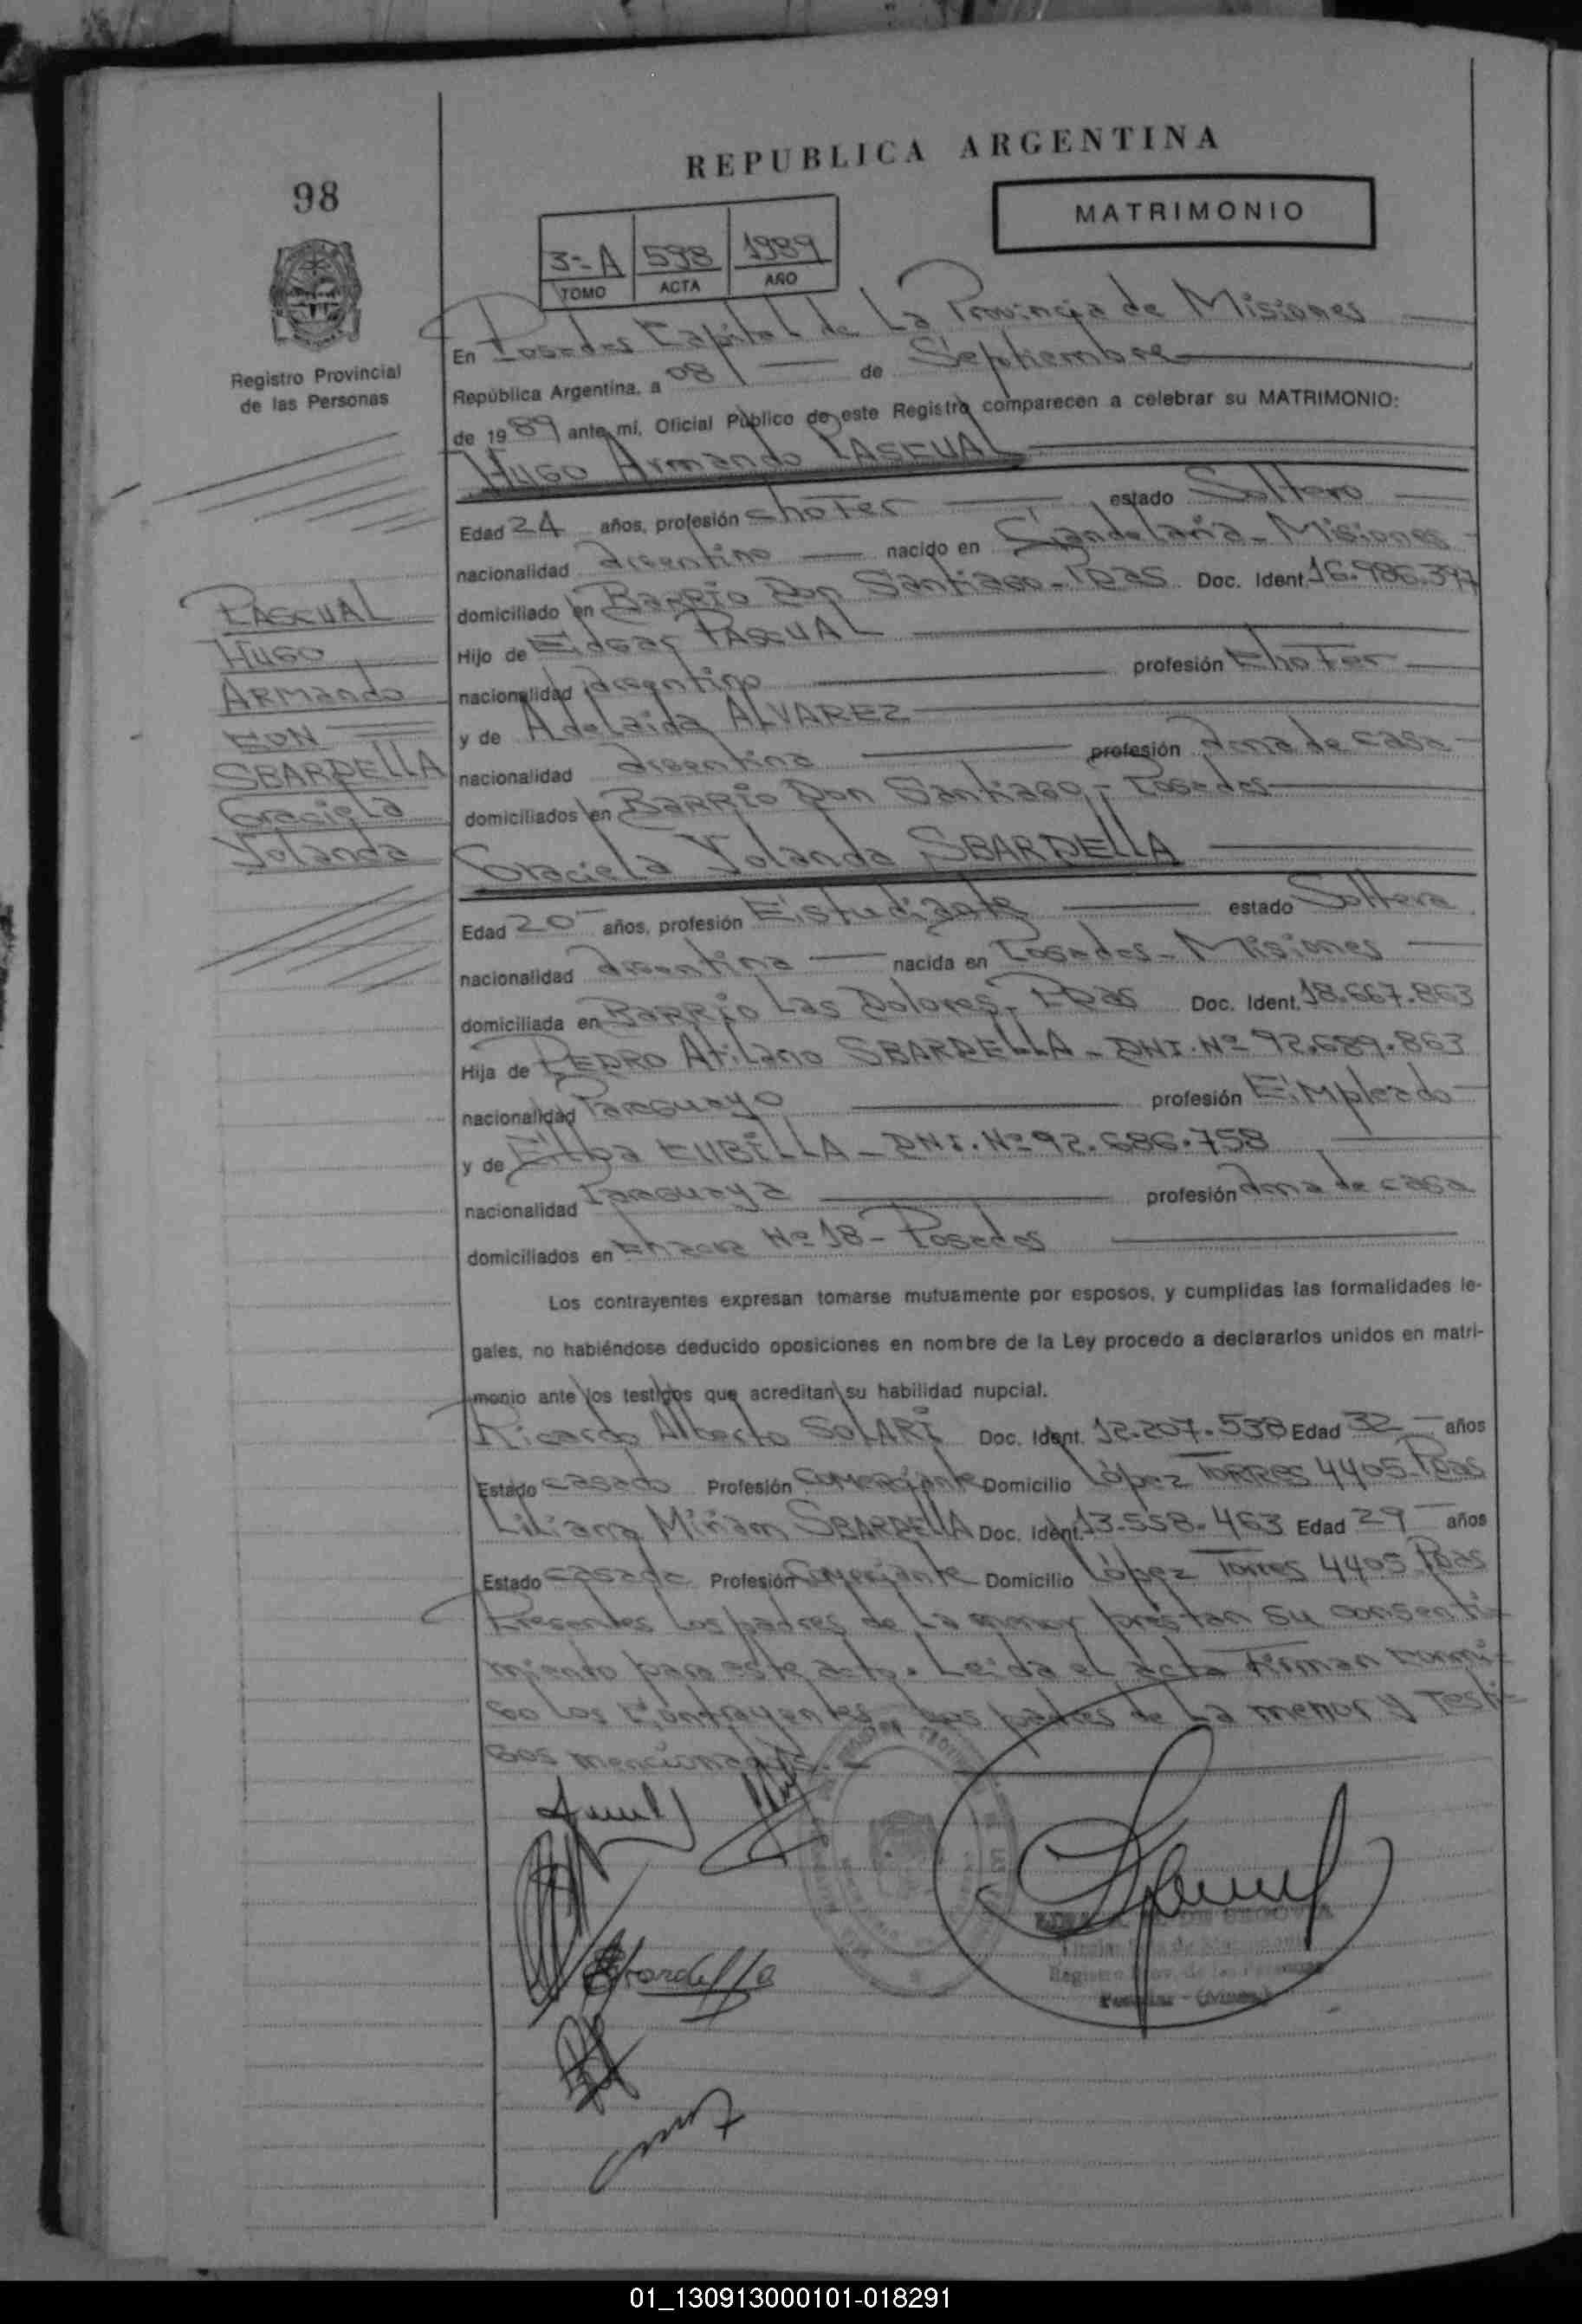 REPUBLICA ARGENTINA
98
MATRIMONIO
3=A 598 1989
TOMO ACTA AÑO
Registro Provincial
de las Personas
En Posadas Capital de La Provincia de Misiones
República Argentina, a 08 de Septiembre
de 1989 ante mí, Oficial Público de este Registro comparecen a celebrar su MATRIMONIO:
Hugo Armando PASCUAL
Edad 24 años, profesión choFer estado Soltero
nacionalidad Argentino nacido en Candelaria - Misiones
domiciliado en BARRio Don Santiago - Pdas Doc. Ident. 16.986.397
Hijo de Edgar PASCUAL
nacionalidad Argentino profesión ChoFer
y de Adelaida ALVAREZ
nacionalidad Argentina profesión Ama de casa
domiciliados en BARRio Don Santiago - Posadas
PASCUAL
HUGO
ARMando
CON
SBARDELLA
Graciela
Yolanda
Graciela Yolanda SBARDELLA
Edad 20 años, profesión Estudiante estado Soltera
nacionalidad Argentina nacida en Posadas - Misiones
domiciliada en BARRio Las Dolores - Pdas Doc. Ident. 18.667.863
Hija de PEDRO Atilano SBARDELLA - DNI. Nº 92.689.863
nacionalidad Paraguayo profesión EMpleado
y de Elba CUBILLA - DNI. Nº 92.686.758
nacionalidad Paraguaya profesión Ama de casa
domiciliados en Chacra Nº 18 - Posadas
Los contrayentes expresan tomarse mutuamente por esposos, y cumplidas las formalidades le-
gales, no habiéndose deducido oposiciones en nombre de la Ley procedo a declararlos unidos en matri-
monio ante los testigos que acreditan su habilidad nupcial.
Ricardo Alberto SOLARI Doc. Ident. 12.207.538 Edad 32 años
Estado casado Profesión Comerciante Domicilio López TORRES 4405 - Pdas
Liliana Miriam SBARDELLA Doc. Ident. 13.558.463 Edad 29 años
Estado casada Profesión Comerciante Domicilio López Torres 4405 - Pdas
Presentes Los padres de La menor prestan su consenti-
miento para este acto. Leida el acta Firman conmi-
go los Contrayentes, Los padres de La menor y Testi-
gos mencionados.
Sbardella
DE SEGOVIA
01_130913000101-018291